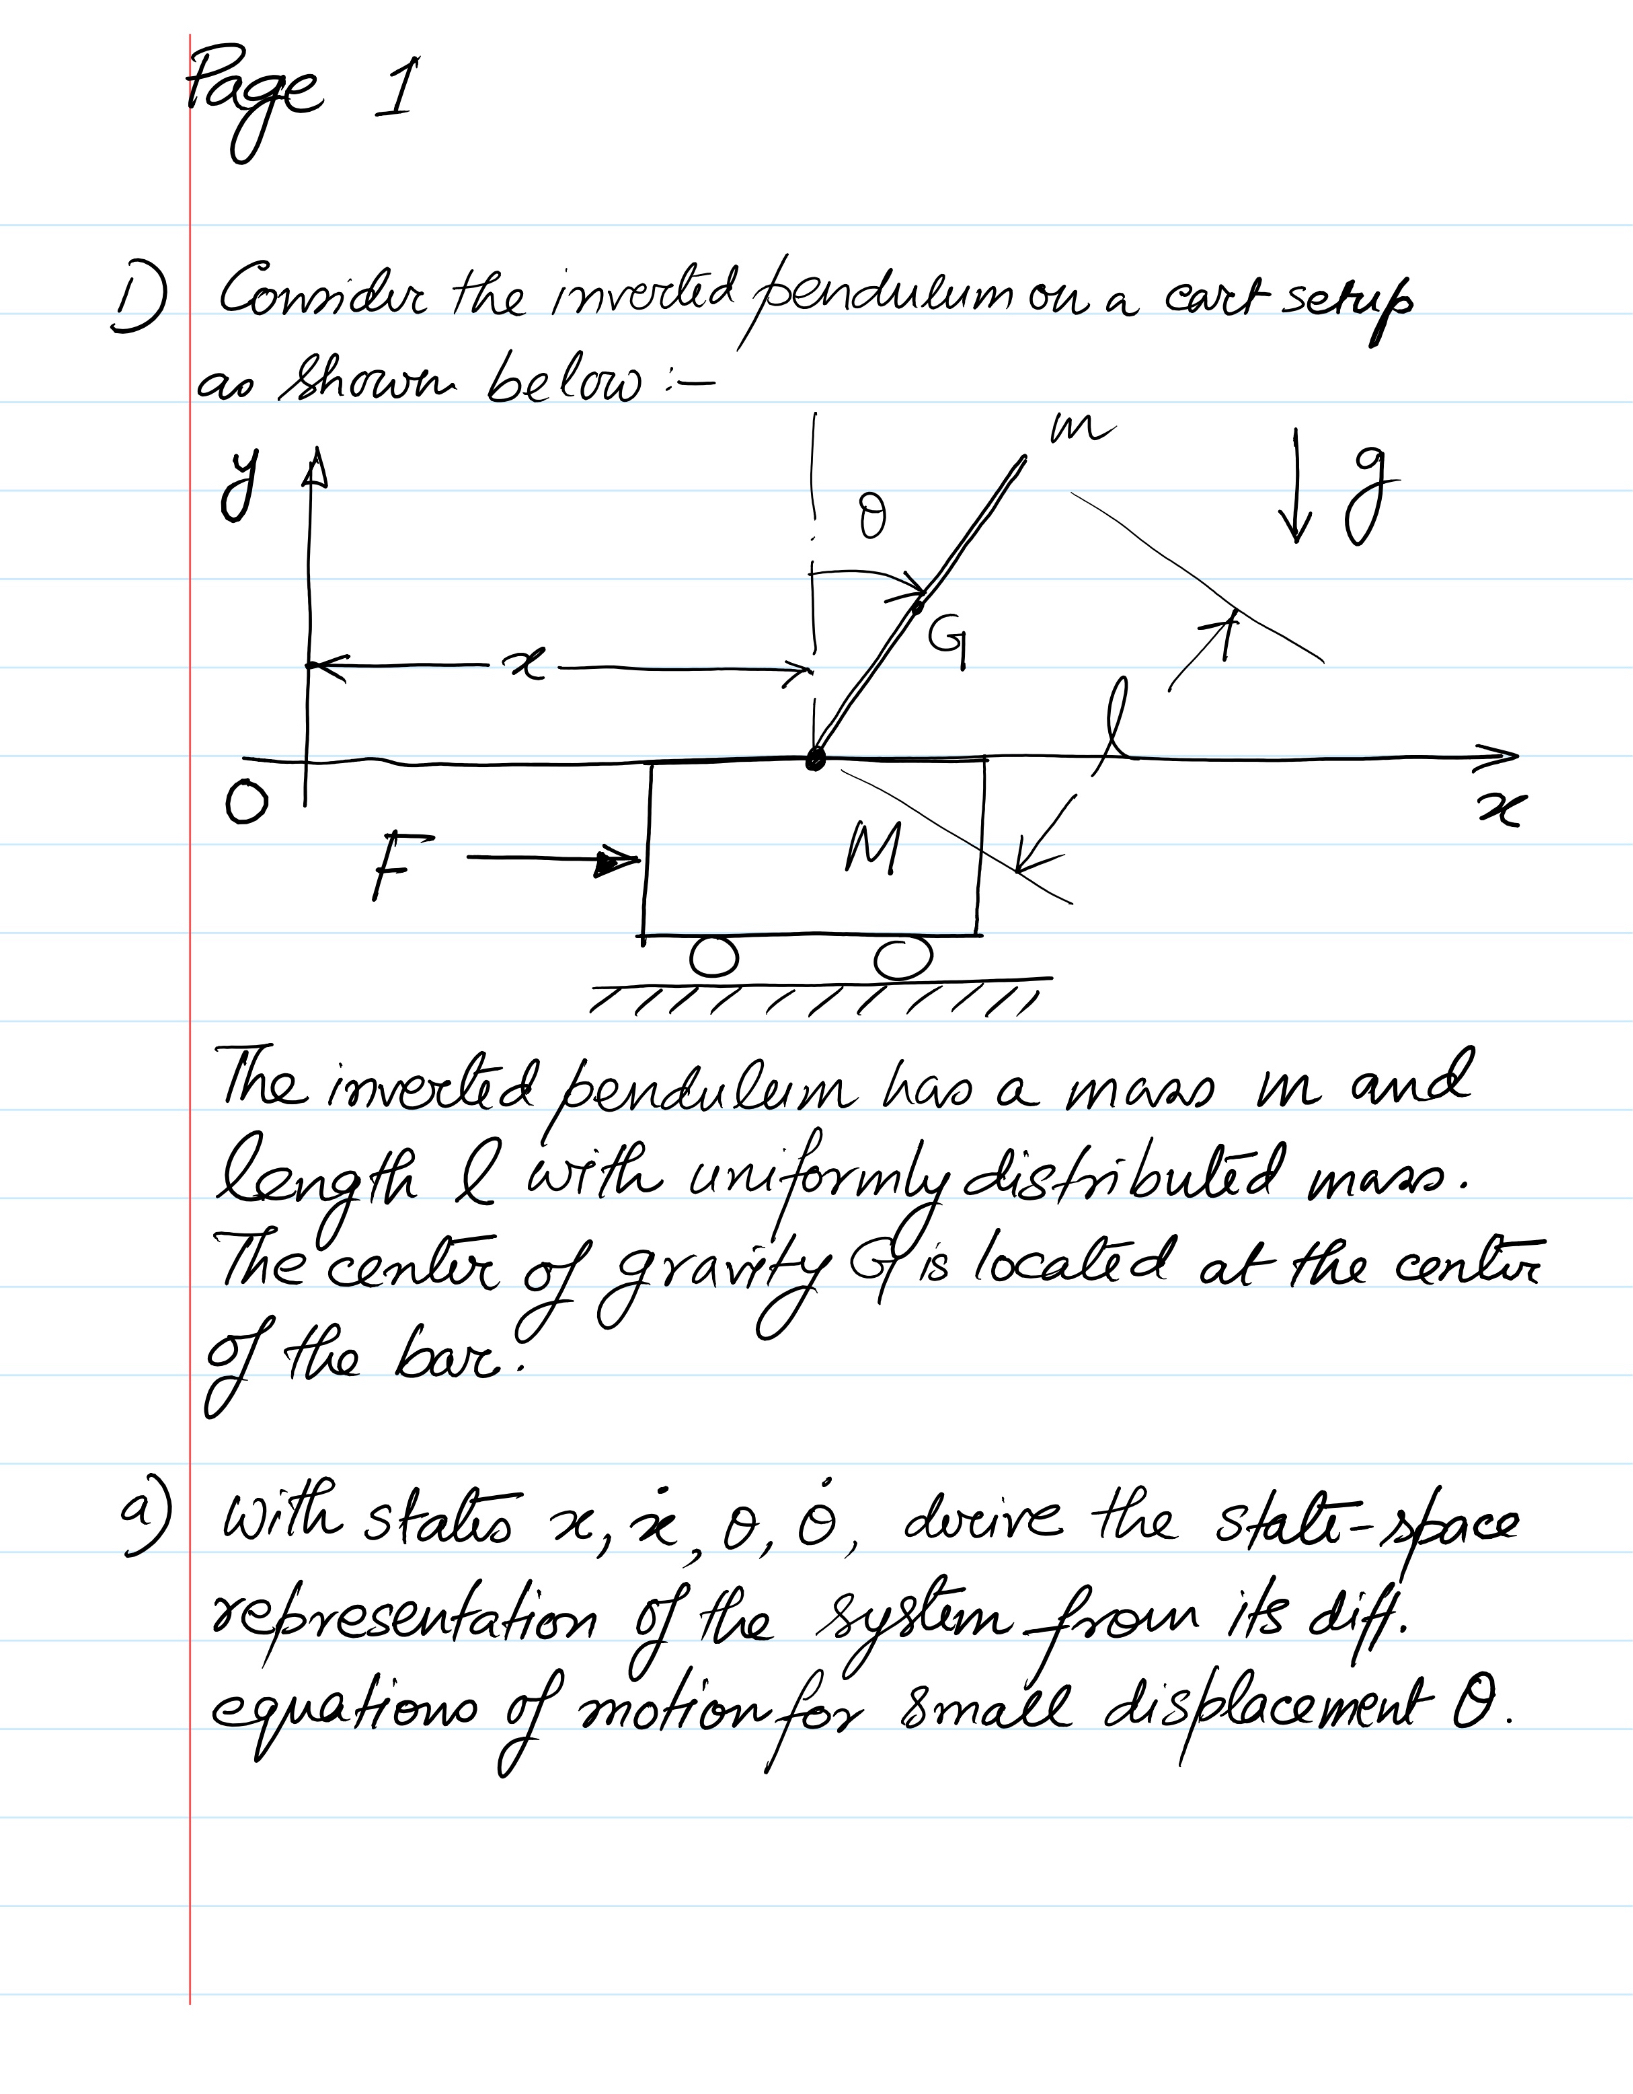 Page 1
1) Consider the inverted pendulum on a cart setup
as shown below :-
m
y
θ
g
G
x
l
O
x
F
M
The inverted pendulum has a mass m and
length l with uniformly distributed mass.
The center of gravity G is located at the center
of the bar.
a) with states x, ẋ, θ, θ̇, derive the state-space
representation of the system from its diff.
equations of motion for small displacement θ.